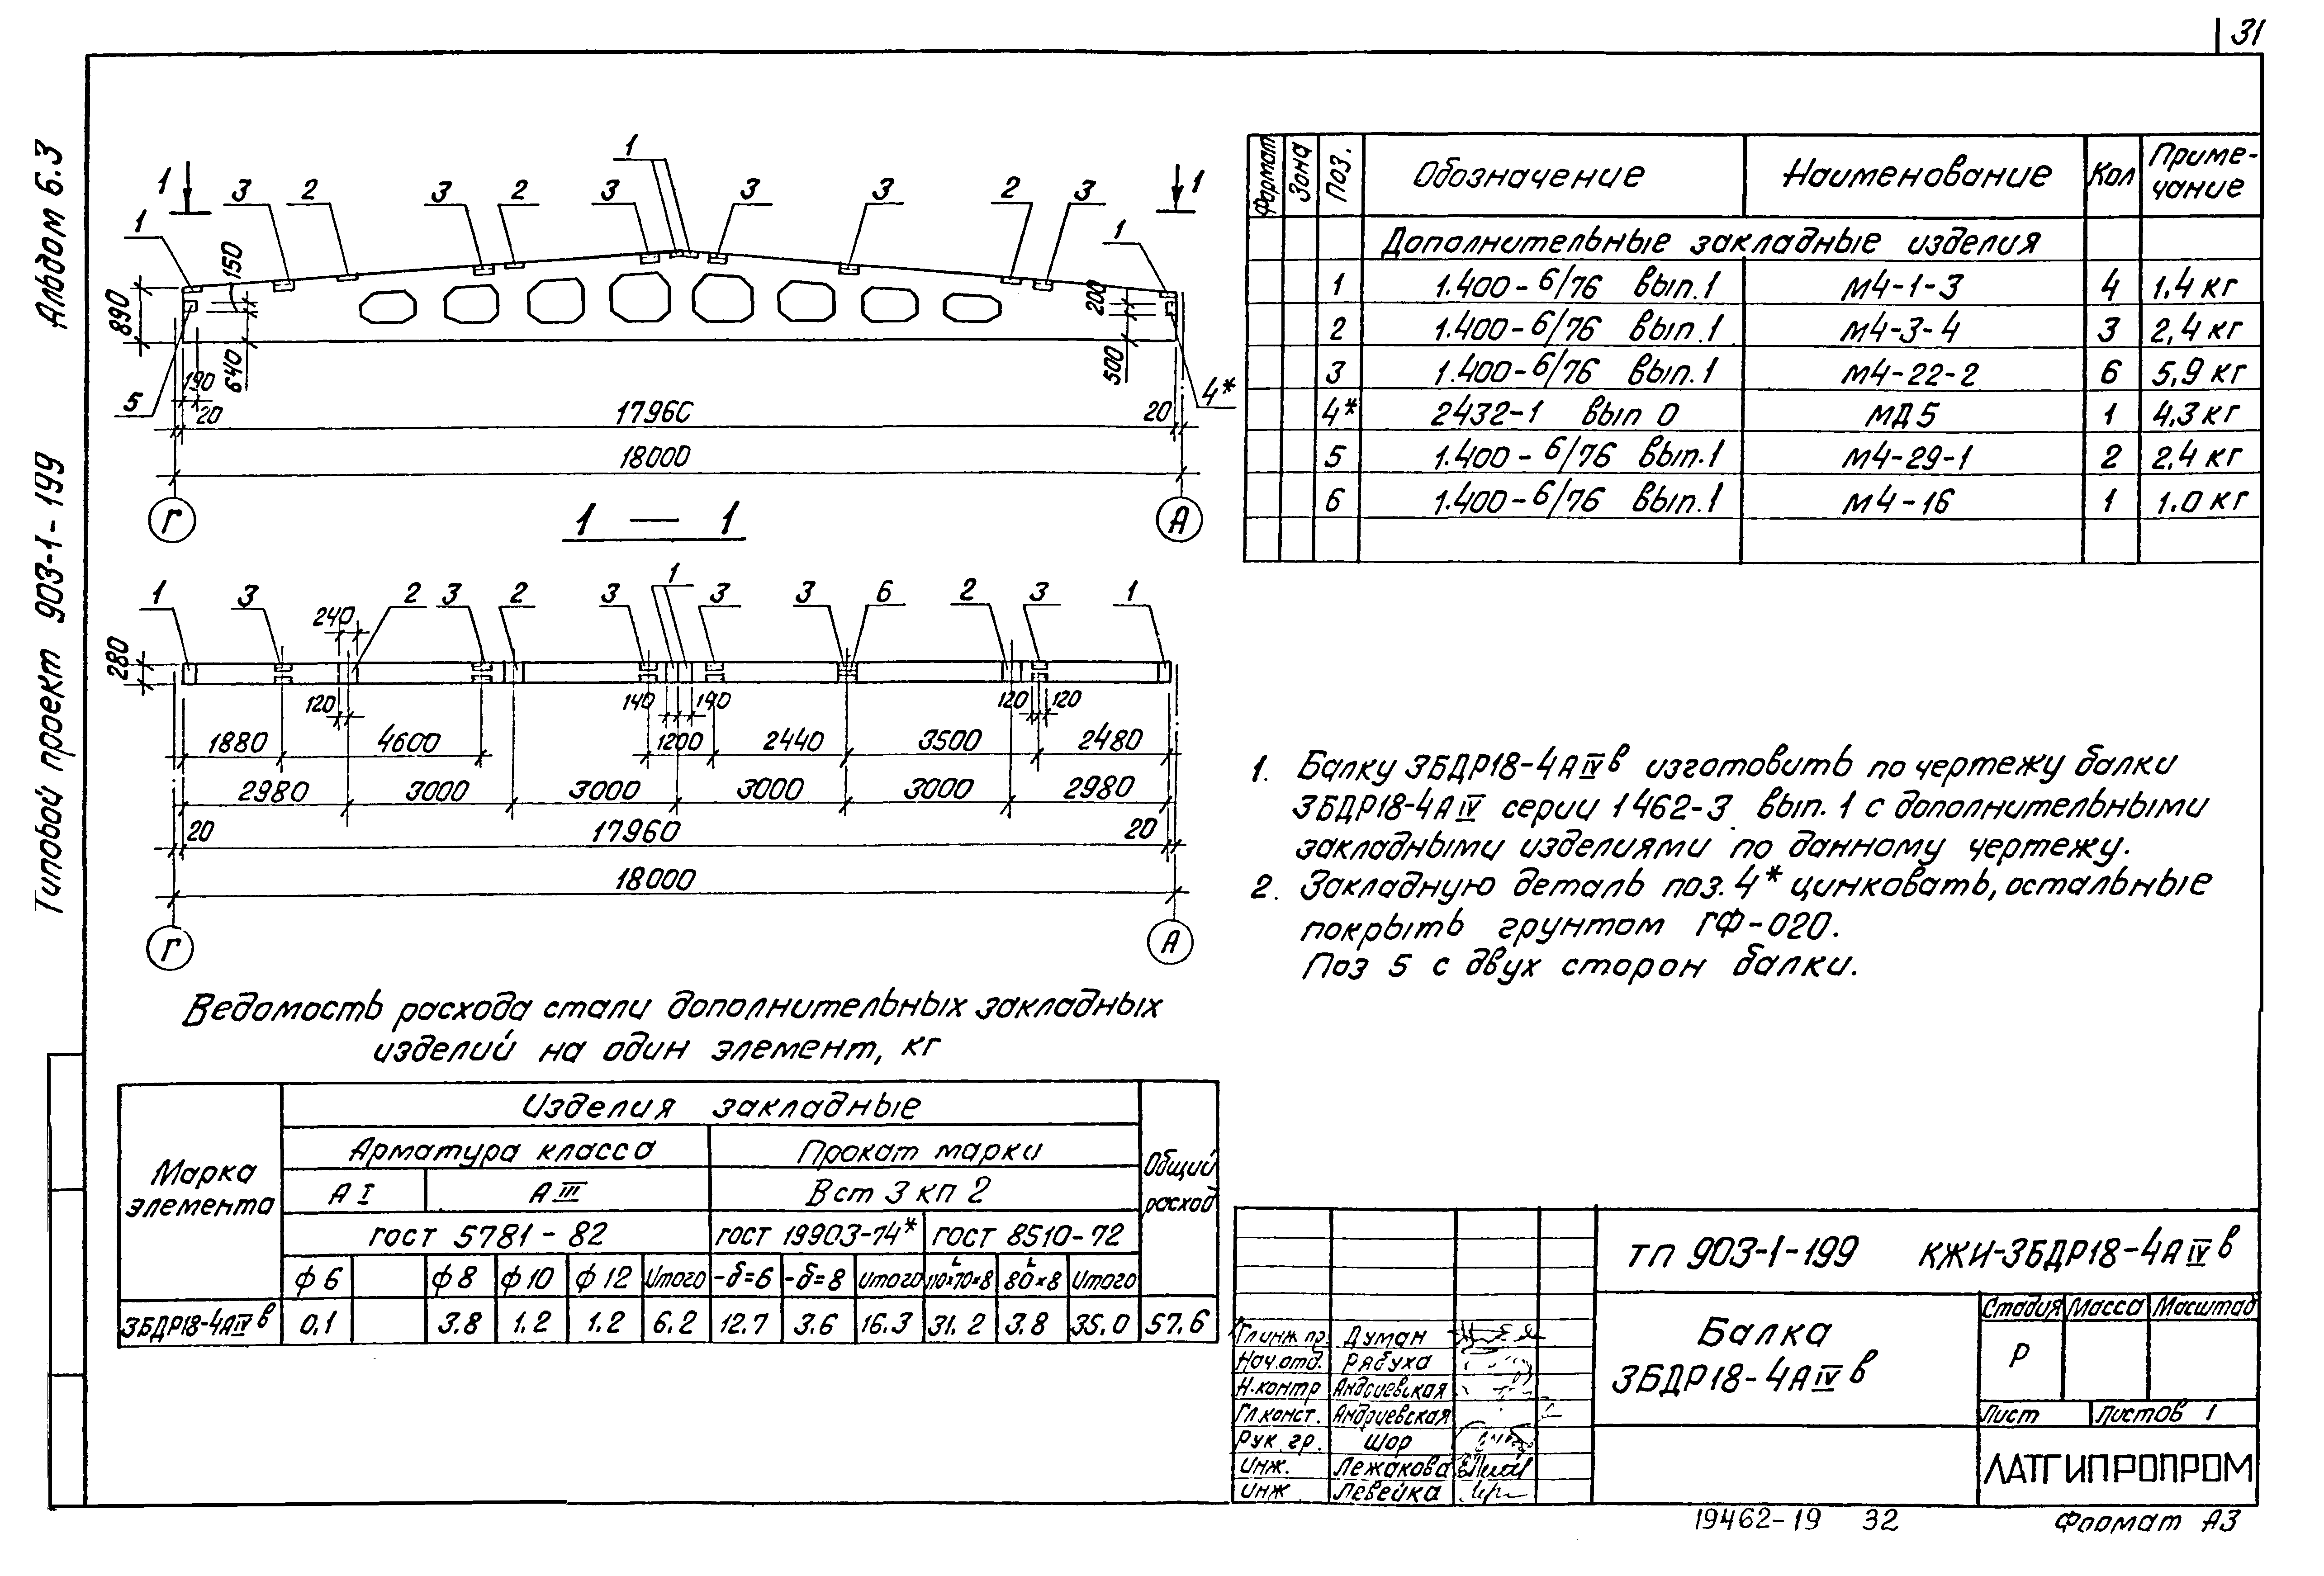 31
Альбом 6.3
Типовой проект 903-1-199
1 1
1
3 2 3 2 3 3 3 2 3
1 1
890 150 640 200 500
190 20
5 4*
17960 20
18000
Г А
1 — 1
1 3 2 3 2 3 1 3 3 6 2 3 1
240
280
120 140 140 120 120
1880 4600 1200 2440 3500 2480
2980 3000 3000 3000 3000 2980
20 17960 20
18000
Г А
Формат Зона Поз. Обозначение Наименование Кол Приме-
чание
Дополнительные закладные изделия
1 1.400-6/76 вып.1 М4-1-3 4 1.4 кг
2 1.400-6/76 вып.1 М4-3-4 3 2,4 кг
3 1.400-6/76 вып.1 М4-22-2 6 5,9 кг
4* 2432-1 вып 0 МД5 1 4,3 кг
5 1.400-6/76 вып.1 М4-29-1 2 2,4 кг
6 1.400-6/76 вып.1 М4-16 1 1.0 кг
1. Балку 3БДР18-4АIVв изготовить по чертежу балки
3БДР18-4АIV серии 1462-3 вып. 1 с дополнительными
закладными изделиями по данному чертежу.
2. Закладную деталь поз. 4* цинковать, остальные
покрыть грунтом ГФ-020.
Поз 5 с двух сторон балки.
Ведомость расхода стали дополнительных закладных
изделий на один элемент, кг
Марка
элемента
Изделия закладные
Общий
расход
Арматура класса Прокат марки
А I А III Вст 3 кп 2
гост 5781-82 гост 19903-74* гост 8510-72
ф6 ф8 ф10 ф12 Итого -δ=6 -δ=8 Итого L110×70×8 L80×8 Итого
3БДР18-4АIVв 0.1 3.8 1.2 1.2 6.2 12.7 3.6 16.3 31.2 3.8 35.0 57.6
ТП 903-1-199 КЖИ-3БДР18-4АIVв
Балка
3БДР18-4АIVв
Стадия Масса Масштаб
Р
Лист Листов 1
ЛАТГИПРОПРОМ
Гл инж пр. Думан
Нач.отд. Рябуха
Н.контр Андриевская
Гл.конст. Андриевская
Рук. гр. Шор
Инж. Лежакова
Инж Левейка
19462-19 32 Формат А3